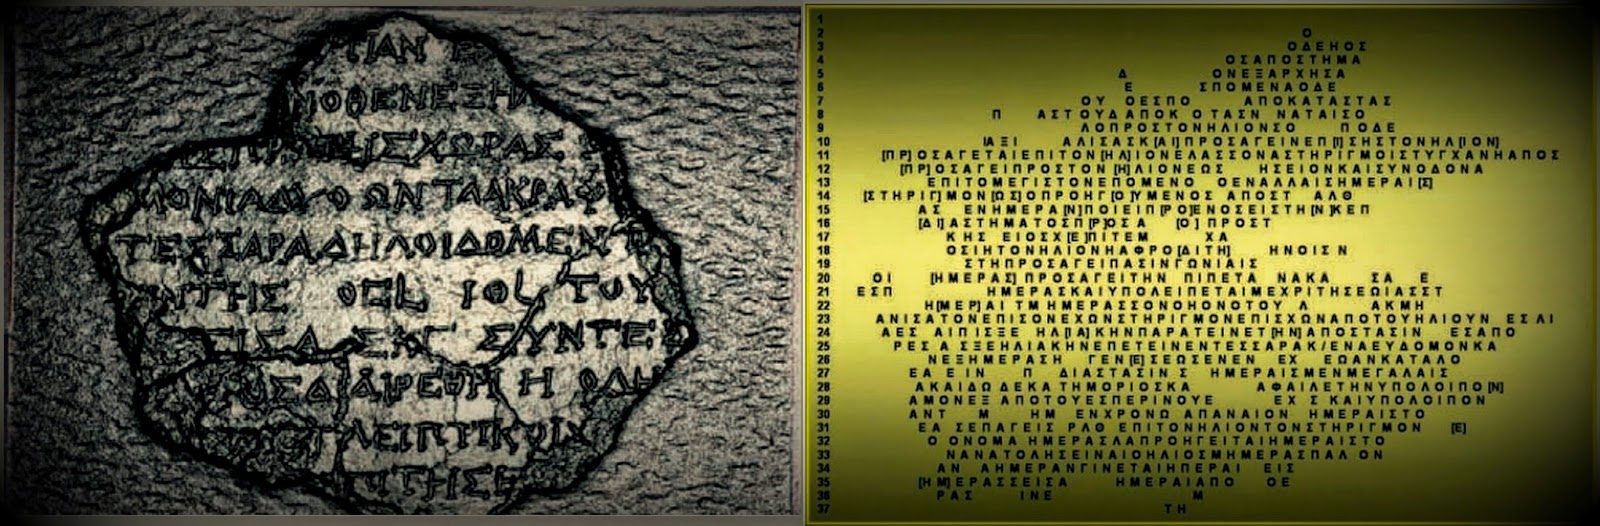 ΤΙΑΝ Ε
ΤΗΣΧΩΡΑΣ
ΩΝ ΤΑ ΑΚΡΑ Φ
ΤΕΣΣΑΡΑ ΔΗΛΟΙ Δ Ο ΜΕΝ Τ
ΤΗΣ ΤΟΥ
ΣΚΓ ΣΥΝΤΕΣ
ΟΣ ΔΙΑΙΡΕΘΗ Η ΟΛΗ
1
2 Ο
3 ΟΔΕΗΟΣ
4 ΟΣΑΠΟΣΤΗΜΑ
5 Δ ΟΝΕΞΑΡΧΗΣΑ
6 Ε ΣΠΟΜΕΝΑΟΔΕ
7 ΟΥ ΟΕΣΠΟ ΑΠΟΚΑΤΑΣΤΑΣ
8 Π ΑΣΤΟΥΔΑΠΟΚ ΟΤΑΣΝ ΝΑΤΑΙΣΟ
9 ΛΟΠΡΟΣΤΟΝΗΛΙΟΝΣΟ ΠΟΔΕ
10 ΙΑΞΙ ΑΛΙΣΑΣΚ[ΑΙ]ΠΡΟΣΑΓΕΙΝΕΠ[Ι]ΣΗΣΤΟΝΗΛ[ΙΟΝ]
11 [ΠΡ]ΟΣΑΓΕΤΑΙΕΠΙΤΟΝ[ΗΛ]ΙΟΝΕΛΑΣΣΟΝΑΣΤΗΡΙΓΜΟΙΣΤΥΓΧΑΝΗΑΠΟΣ
12 [ΠΡ]ΟΣΑΓΕΙΠΡΟΣΤΟΝ[Η]ΛΙΟΝΕΩΣ ΗΣΕΙΟΝΚΑΙΣΥΝΟΔΟΝΑ
13 ΕΠΙΤΟΜΕΓΙΣΤΟΝΕΠΟΜΕΝΟ ΟΕΝΑΛΛΑΙΣΗΜΕΡΑΙ[Σ]
14 [ΣΤΗΡΙΓΜΟΝ[ΩΣ]ΟΠΡΟΗΓ[Ο]ΥΜΕΝΟΣ ΑΠΟΣΤ ΑΛΘ
15 ΑΣ ΕΝΗΜΕΡΑ[Ν]ΠΟΙΕΙΠ[ΡΟ]ΕΝΟΣΕΙΣΤΗ[Ν]ΚΕΠ
16 [ΔΙ]ΑΣΤΗΜΑΤΟΣΠ[Ρ]ΟΣΑ [Ο] ΠΡΟΣΤ
17 ΚΗΣ ΕΙΟΣΧ[Ε]ΠΙΤΕΜ ΧΑ
18 ΟΣΙΗΤΟΝΗΛΙΟΝΗΑΦΡΟ[ΔΙΤΗ] ΗΝΟΙΣΝ
19 ΣΤΗΠΡΟΣΑΓΕΙΠΑΣΙΝΓΩΝΙΑΙΣ
20 ΟΙ [ΗΜΕΡΑΣ]ΠΡΟΣΑΓΕΙΤΗΝ ΠΙΠΕΤΑ ΝΑΚΑ ΣΑ Ε
21 ΕΣΠ ΗΜΕΡΑΣΚΑΙΥΠΟΛΕΙΠΕΤΑΙΜΕΧΡΙΤΗΣΕΩΙΑΣΣΤ
22 Η[ΜΕΡ]ΑΙ ΤΜΗΜΕΡΑΣΣΟΝΟΗΟΝΟΤΟΥ Λ ΑΚΜΗ
23 ΑΝΙΣΑΤΟΝΕΠΙΣΟΝΕΧΩΝΣΤΗΡΙΓΜΟΝΕΠΙΣΧΩΝΑΠΟΤΟΥΗΛΙΟΥΝ ΕΣΛΙ
24 ΑΕΣ ΑΙΠΙΣΞΕ ΗΛ[ΙΑ]ΚΗΝΠΑΡΑΤΕΙΝΕΤ[ΗΝ]ΑΠΟΣΤΑΣΙΝ ΕΣΑΠΟ
25 ΡΕΣ Α ΣΞΕΗΛΙΑΚΗΝΕΠΕΤΕΙΝΕΝΤΕΣΣΑΡΑΚ/ΕΝΑΕΥΔΟΜΟΝΚΑ
26 ΝΕΞΗΜΕΡΑΣΗ ΓΕΝ[Ε]ΣΕΩΣΕΝΕΝ ΕΧ ΕΩΑΝΚΑΤΑΛΟ
27 ΕΑ ΕΙΝ Π ΔΙΑΣΤΑΣΙΝΣ ΗΜΕΡΑΙΣΜΕΝΜΕΓΑΛΑΙΣ
28 ΑΚΑΙΔΩΔΕΚΑΤΗΜΟΡΙΟΣΚΑ ΑΦΑΙΛΕΤΗΝΥΠΟΛΟΙΠΟ[Ν]
29 ΑΜΟΝΕΞ ΑΠΟΤΟΥΕΣΠΕΡΙΝΟΥΕ ΕΧ Σ ΚΑΙΥΠΟΛΟΙΠΟΝ
30 ΑΝΤ Μ ΗΜ ΕΝΧΡΟΝΩ ΑΠΑΝΑΙΟΝ ΗΜΕΡΑΙΣΤΟ
31 ΕΑ ΣΕΠΑΓΕΙΣ ΡΛΘ ΕΠΙΤΟΝΗΛΙΟΝΤΟΝΣΤΗΡΙΓΜΟΝ [Ε]
32 Ο ΟΝΟΜΑ ΗΜΕΡΑΣΛΑΠΡΟΗΓΕΙΤΑΙΗΜΕΡΑΙΣΤΟ
33 ΝΑΝΑΤΟΛΗΣΕΙΝΑΙΟΗΛΙΟΣΜΗΜΕΡΑΣΠΑΛ ΟΝ
34 ΑΝ ΑΗΜΕΡΑΝΓΙΝΕΤΑΙΗΠΕΡΑΙ ΕΙΣ
35 [ΗΜ]ΕΡΑΣΣΕΙΣΑ ΗΜΕΡΑΙΑΠΟ ΟΕ
36 ΡΑΣ ΙΝΕ Μ
37 ΤΗ